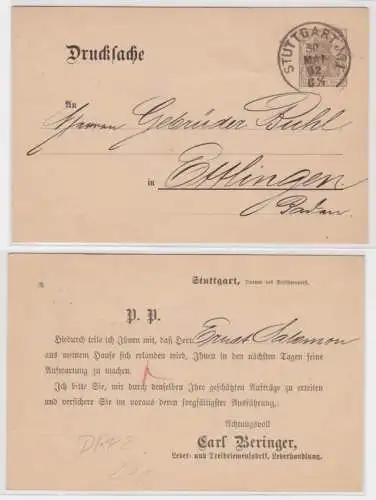 Drucksache
STUTTGART
30
MAI
02
An
Herren Gebrüder Buhl
in Ettlingen
Baden.
Stuttgart, Datum des Poststempels.
P. P.
Hiedurch teile ich Ihnen mit, daß Herr Ernst Salomon
aus meinem Hause sich erlauben wird, Ihnen in den nächsten Tagen seine
Aufwartung zu machen.
Ich bitte Sie, mir durch denselben Ihre geschätzten Aufträge zu erteilen
und versichere Sie im voraus deren sorgfältigster Ausführung.
Achtungsvoll
Carl Beringer,
Leder- und Treibriemenfabrik, Lederhandlung.